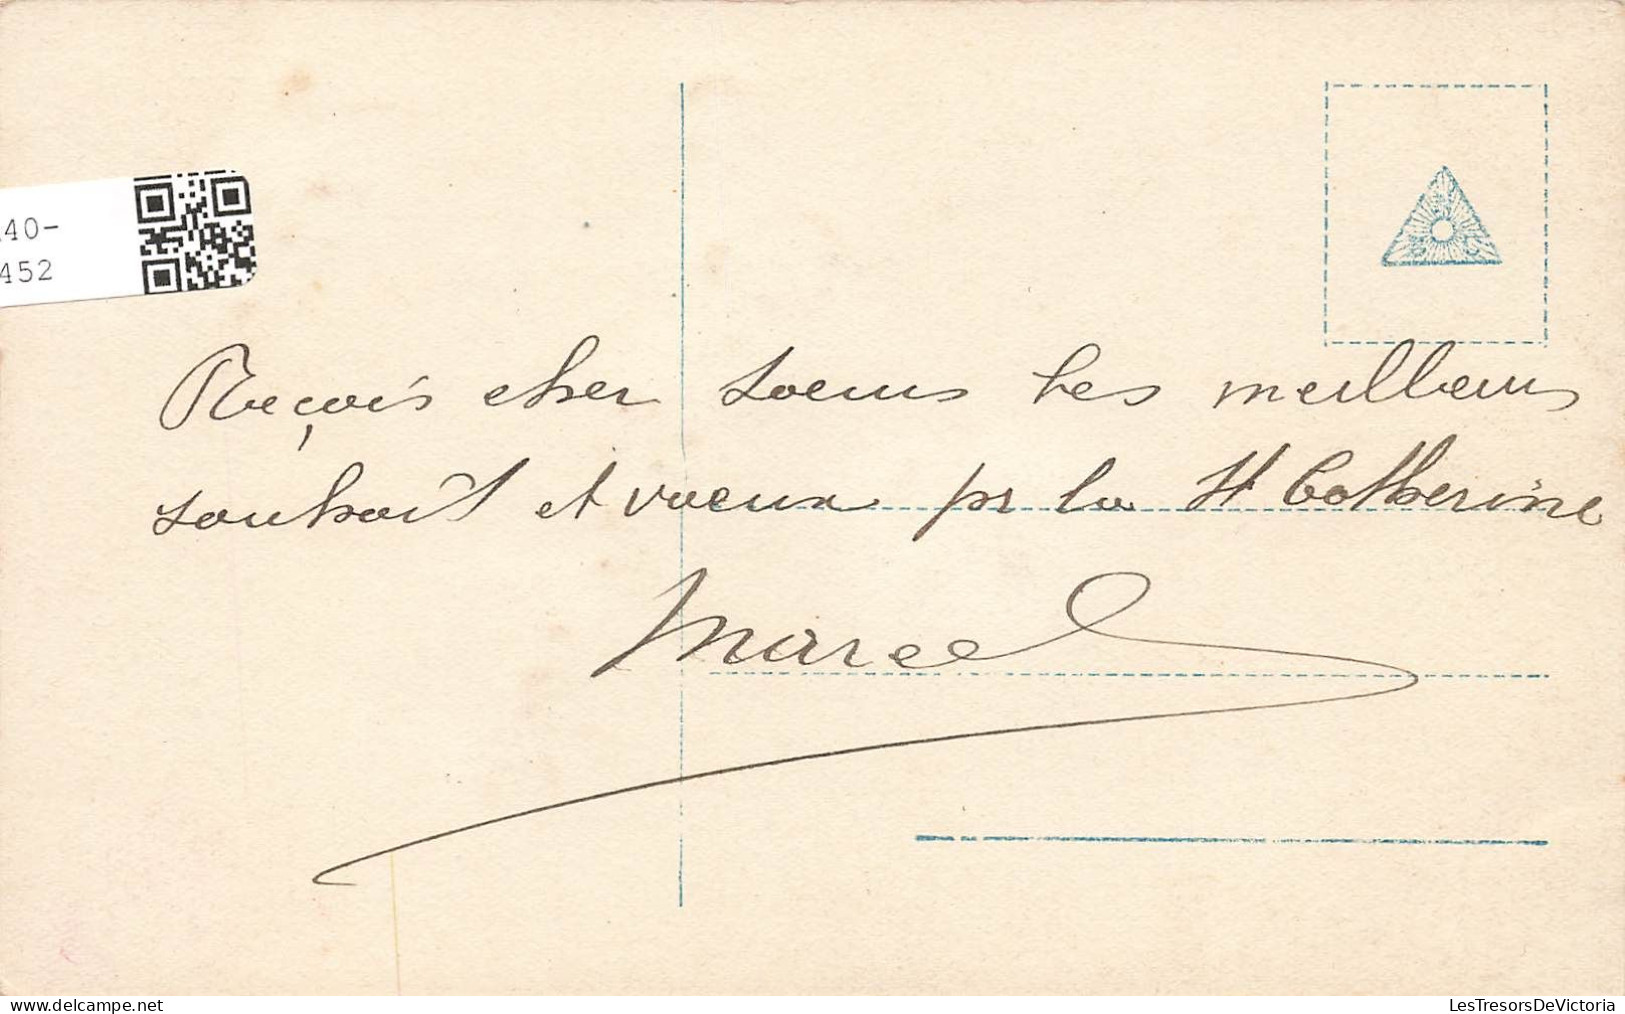 40-
452
Reçois cher soeurs les meilleurs
souhait et voeux pr la St Catherine
Marcel
LesTresorsDeVictoria